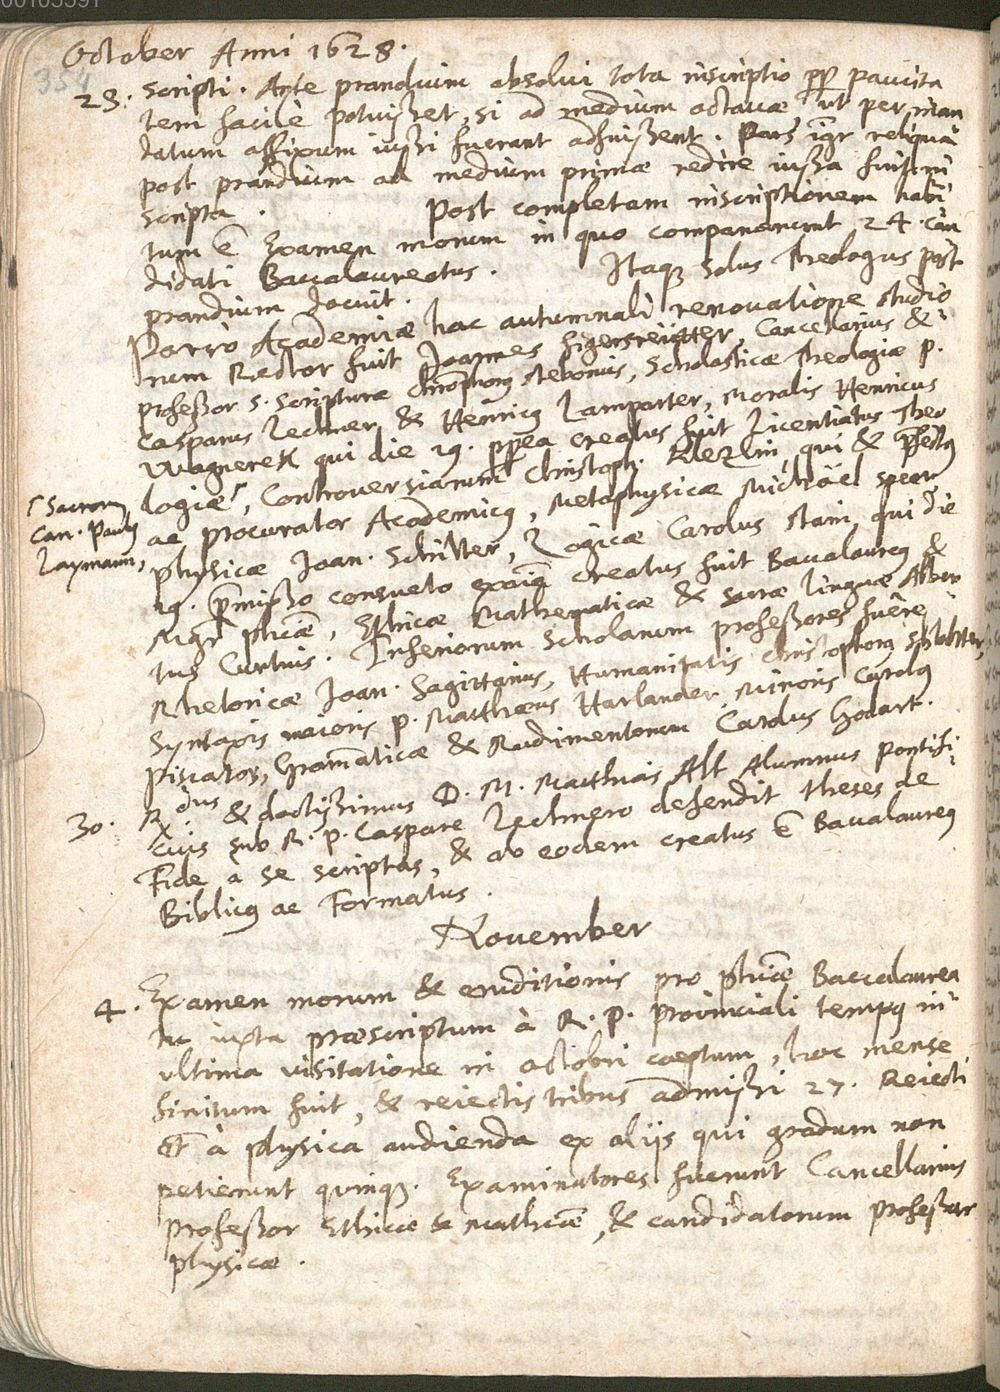 00105591
October Anni 1628.
354
23. scripti. Ante prandium absolui tota inscriptio ppr paucita
tem facilè potuisset, si ad medium octauae ut per man
datum affixum iussi fuerant adfuissent. Pars igr reliqua
post prandium ad medium primae redire iussa fuit, in
scripta. Post completam inscriptionem habi
tum ē Examen morum in quo comparuerunt 24. can
didati Baccalaureatus. Itaq; solus Theologus post
prandium docuit.
Porro Academiae hac autumnali renouatione studio
rum Rector fuit Joannes Sigersreütter, Cancellarius &
professor S. Scripturae Christophorg Stebonius, Scholasticae Theologiae P.
Casparus Lechner & Henricg Lamparter, Moralis Henricus
Wagnerek qui die 19. ppea creatus fuit Licentiatus Theo
logiae, Controversiarum Christoph. Klezlin, qui & Pfectg
⌈Sacrorum
Can. Paulg
Laymann,
ac procurator Academicg, Metaphysicae Michäel Speer,
Physicae Joan. Schitter, Logicae Carolus Stain, qui die
19. Pmisso consueto exaīe creatus fuit Baccalaureg &
Mgr phicae, Ethicae Mathematicae & sacrae linguae Alber
tus Curtius. Inferiorum Scholarum professores fuêre
Rhetoricae Joan. Sagittarius, Humanitatis Christophorg
Syntaxis maioris P. Matthaeus Harlander, Minoris Carolg
Piscator, Gramaticae & Rudimentorum Carolus Godart.
30. Rdus & doctissimus D. M. Matthias Alt Alumnus Pontifi-
cius sub R. P. Caspare Lechnero defendit theses de
Fide a se scriptas, & ab eodem creatus ē Baccalaureg
Biblicg ac Formatus.
November
4. Examen morum & eruditionis pro phicae Baccalaurea
tu iuxta praescriptum à R. P. Prouinciali tempg in
ultima uisitatione in octobri coeptum, hoc mense
finitum fuit, & reiectis tribus admissi 27. Reiecti
st à Physica audienda ex alijs qui gradum non
petierunt quinq;. Examinatores fuerunt Cancellarius
Professor Ethicae & mathicae, & candidatorum Professor
Physicae.